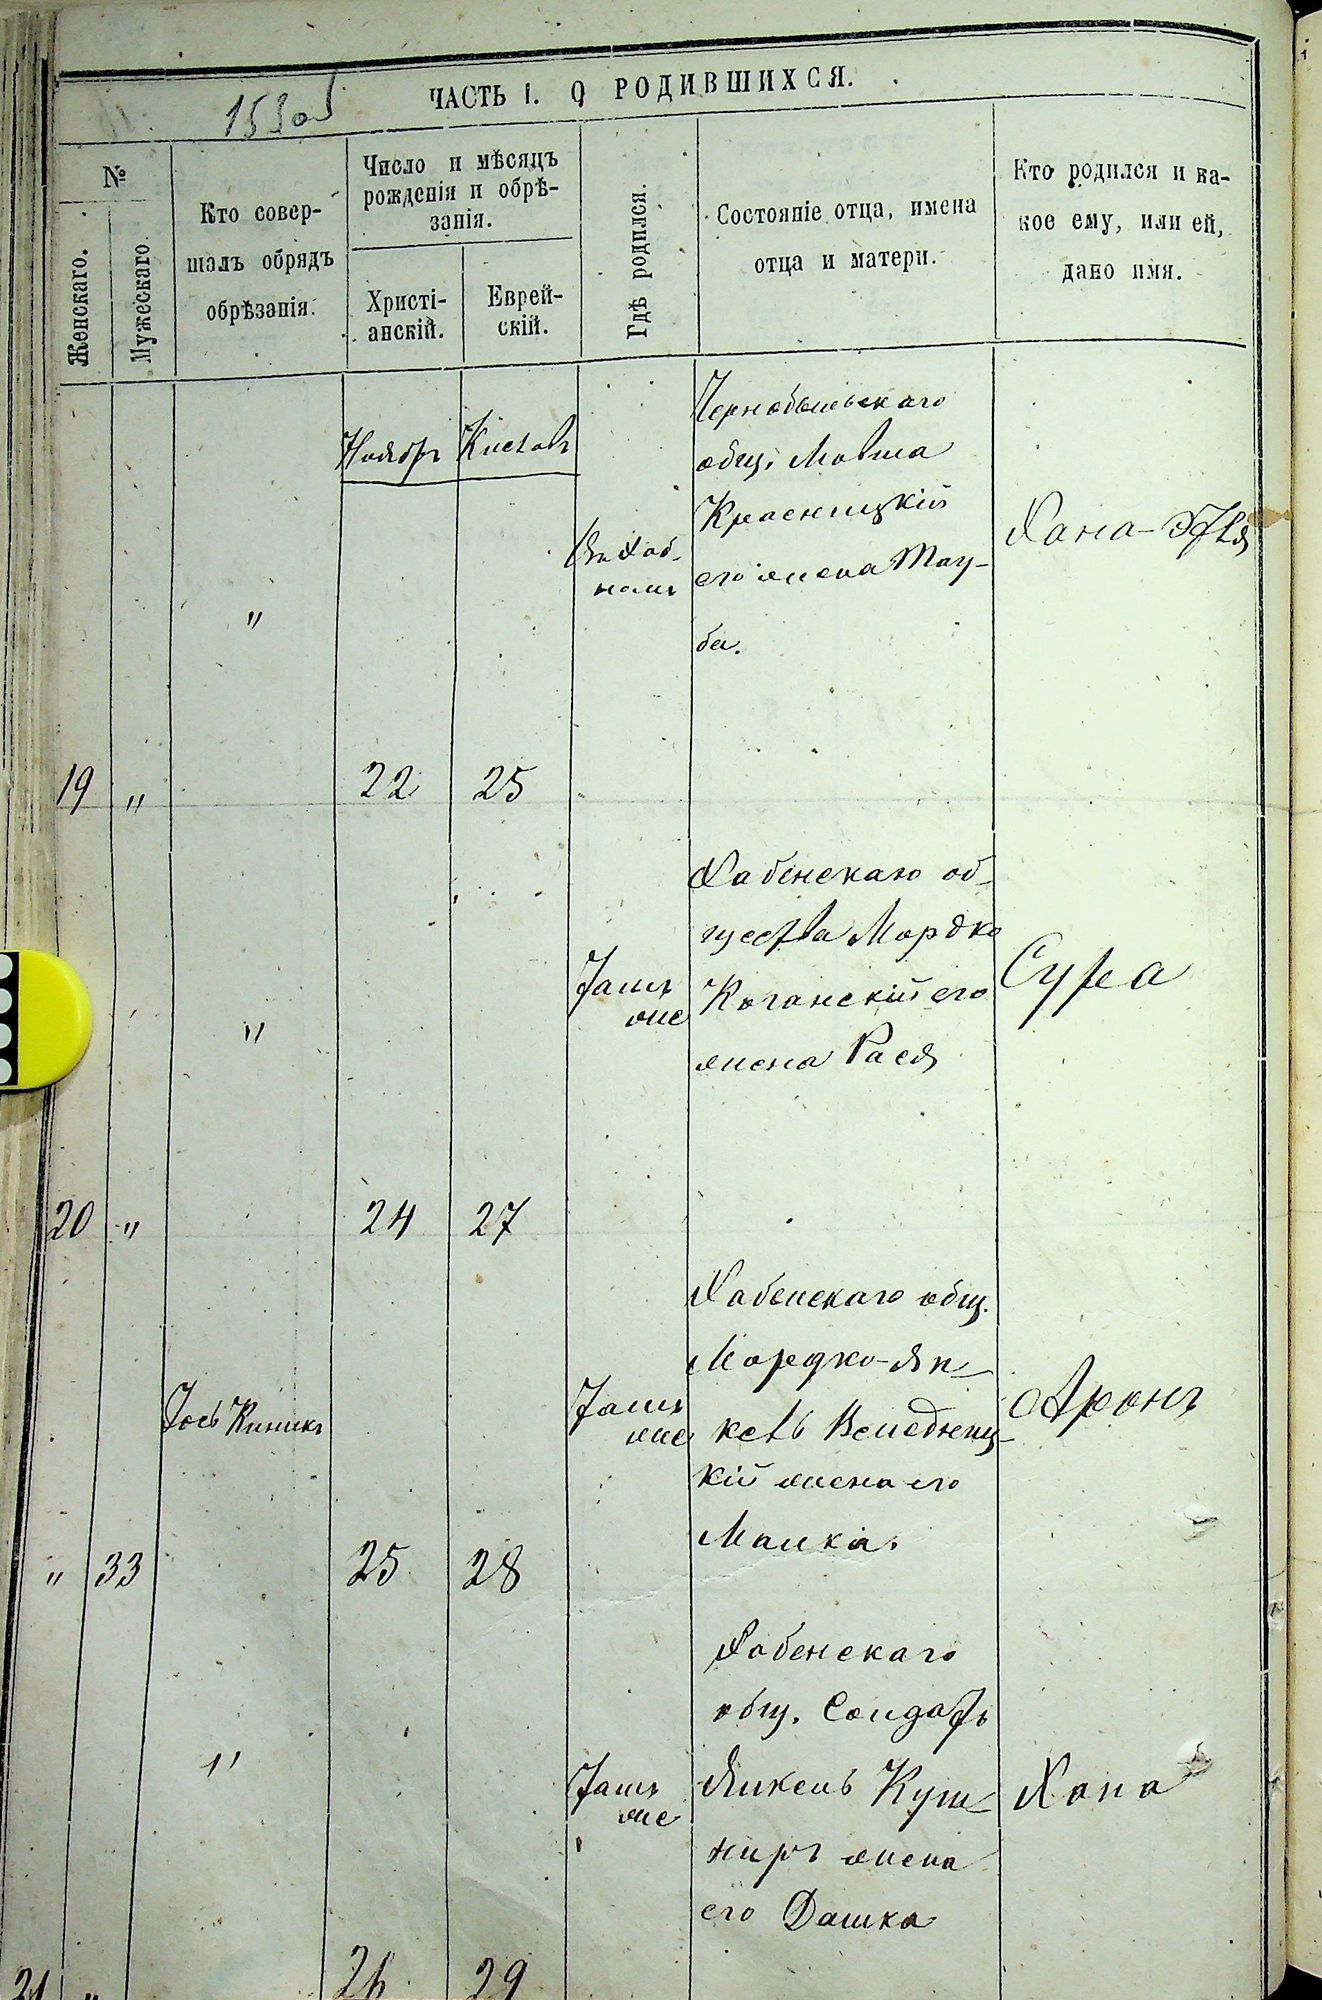 ЧАСТЬ I. О РОДИВШИХСЯ.
№
Женскаго.
Мужескаго
Кто совер-
шалъ обрядъ
обрѣзанія.
Число и мѣсяцъ
рожденія и обрѣ-
занія.
Христі-
анскій.
Еврей-
скій.
Гдѣ родился.
Состояніе отца, имена
отца и матери.
Кто родился и ка-
кое ему, или ей,
дано имя.
Ноябрь Кислевъ
19 " " 22 25
Чернобыльскаго
общ. Мовша
Красницкій
его жена Тау-
ба.
20 " " 24 27
Тамъ
же
Хабенскаго об-
щества Мордко
Коганскій его
жена Рася
Сура
" 33 25 28
Тамъ
же
Хабенскаго общ.
Мордко-Ян-
кель
кій жена его
Малка.
Аронъ
21 " " 26 29
Тамъ
же
Хабенскаго
общ. Солдатъ
Янкель Куш-
ниръ жена
его Дашка
Хана